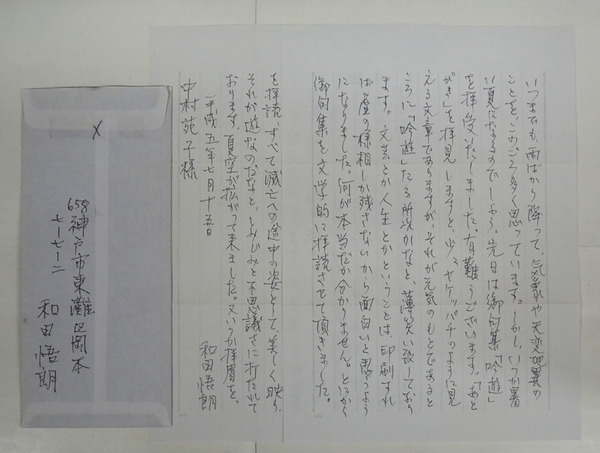 いつまでも雨ばかり降って、元気や天変地異の
ことを、このごろ多く思っています。しかし、いつか暑
い夏になるのでしょう。先日は御句集「吟遊」
を拝受いたしました。有難うございます。「あと
がき」を拝見しますと、少々ヤケッパチのように見
える文章でありますが、それが元気のもとであると
ころに「吟遊」たる所以かなと、薄笑い致しており
ます。文芸とか人生とかということは、印刷すれ
ば虚の様相しか残さないから面白いと思うよう
になりました。何が本当だか分かりません。とにかく
御句集を文学的に拝読させて頂きました。
を拝読、すべて滅亡への途中の姿として、美しく映り、
それが遊なのだなと、しみじみと不思議さに打たれて
おります。夏空が拡がって来ました。又いつか拝眉を。
平成五年七月十五日
和田悟朗
中村苑子様
658
神戸市東灘区岡本
七ー七ー二
和田悟朗